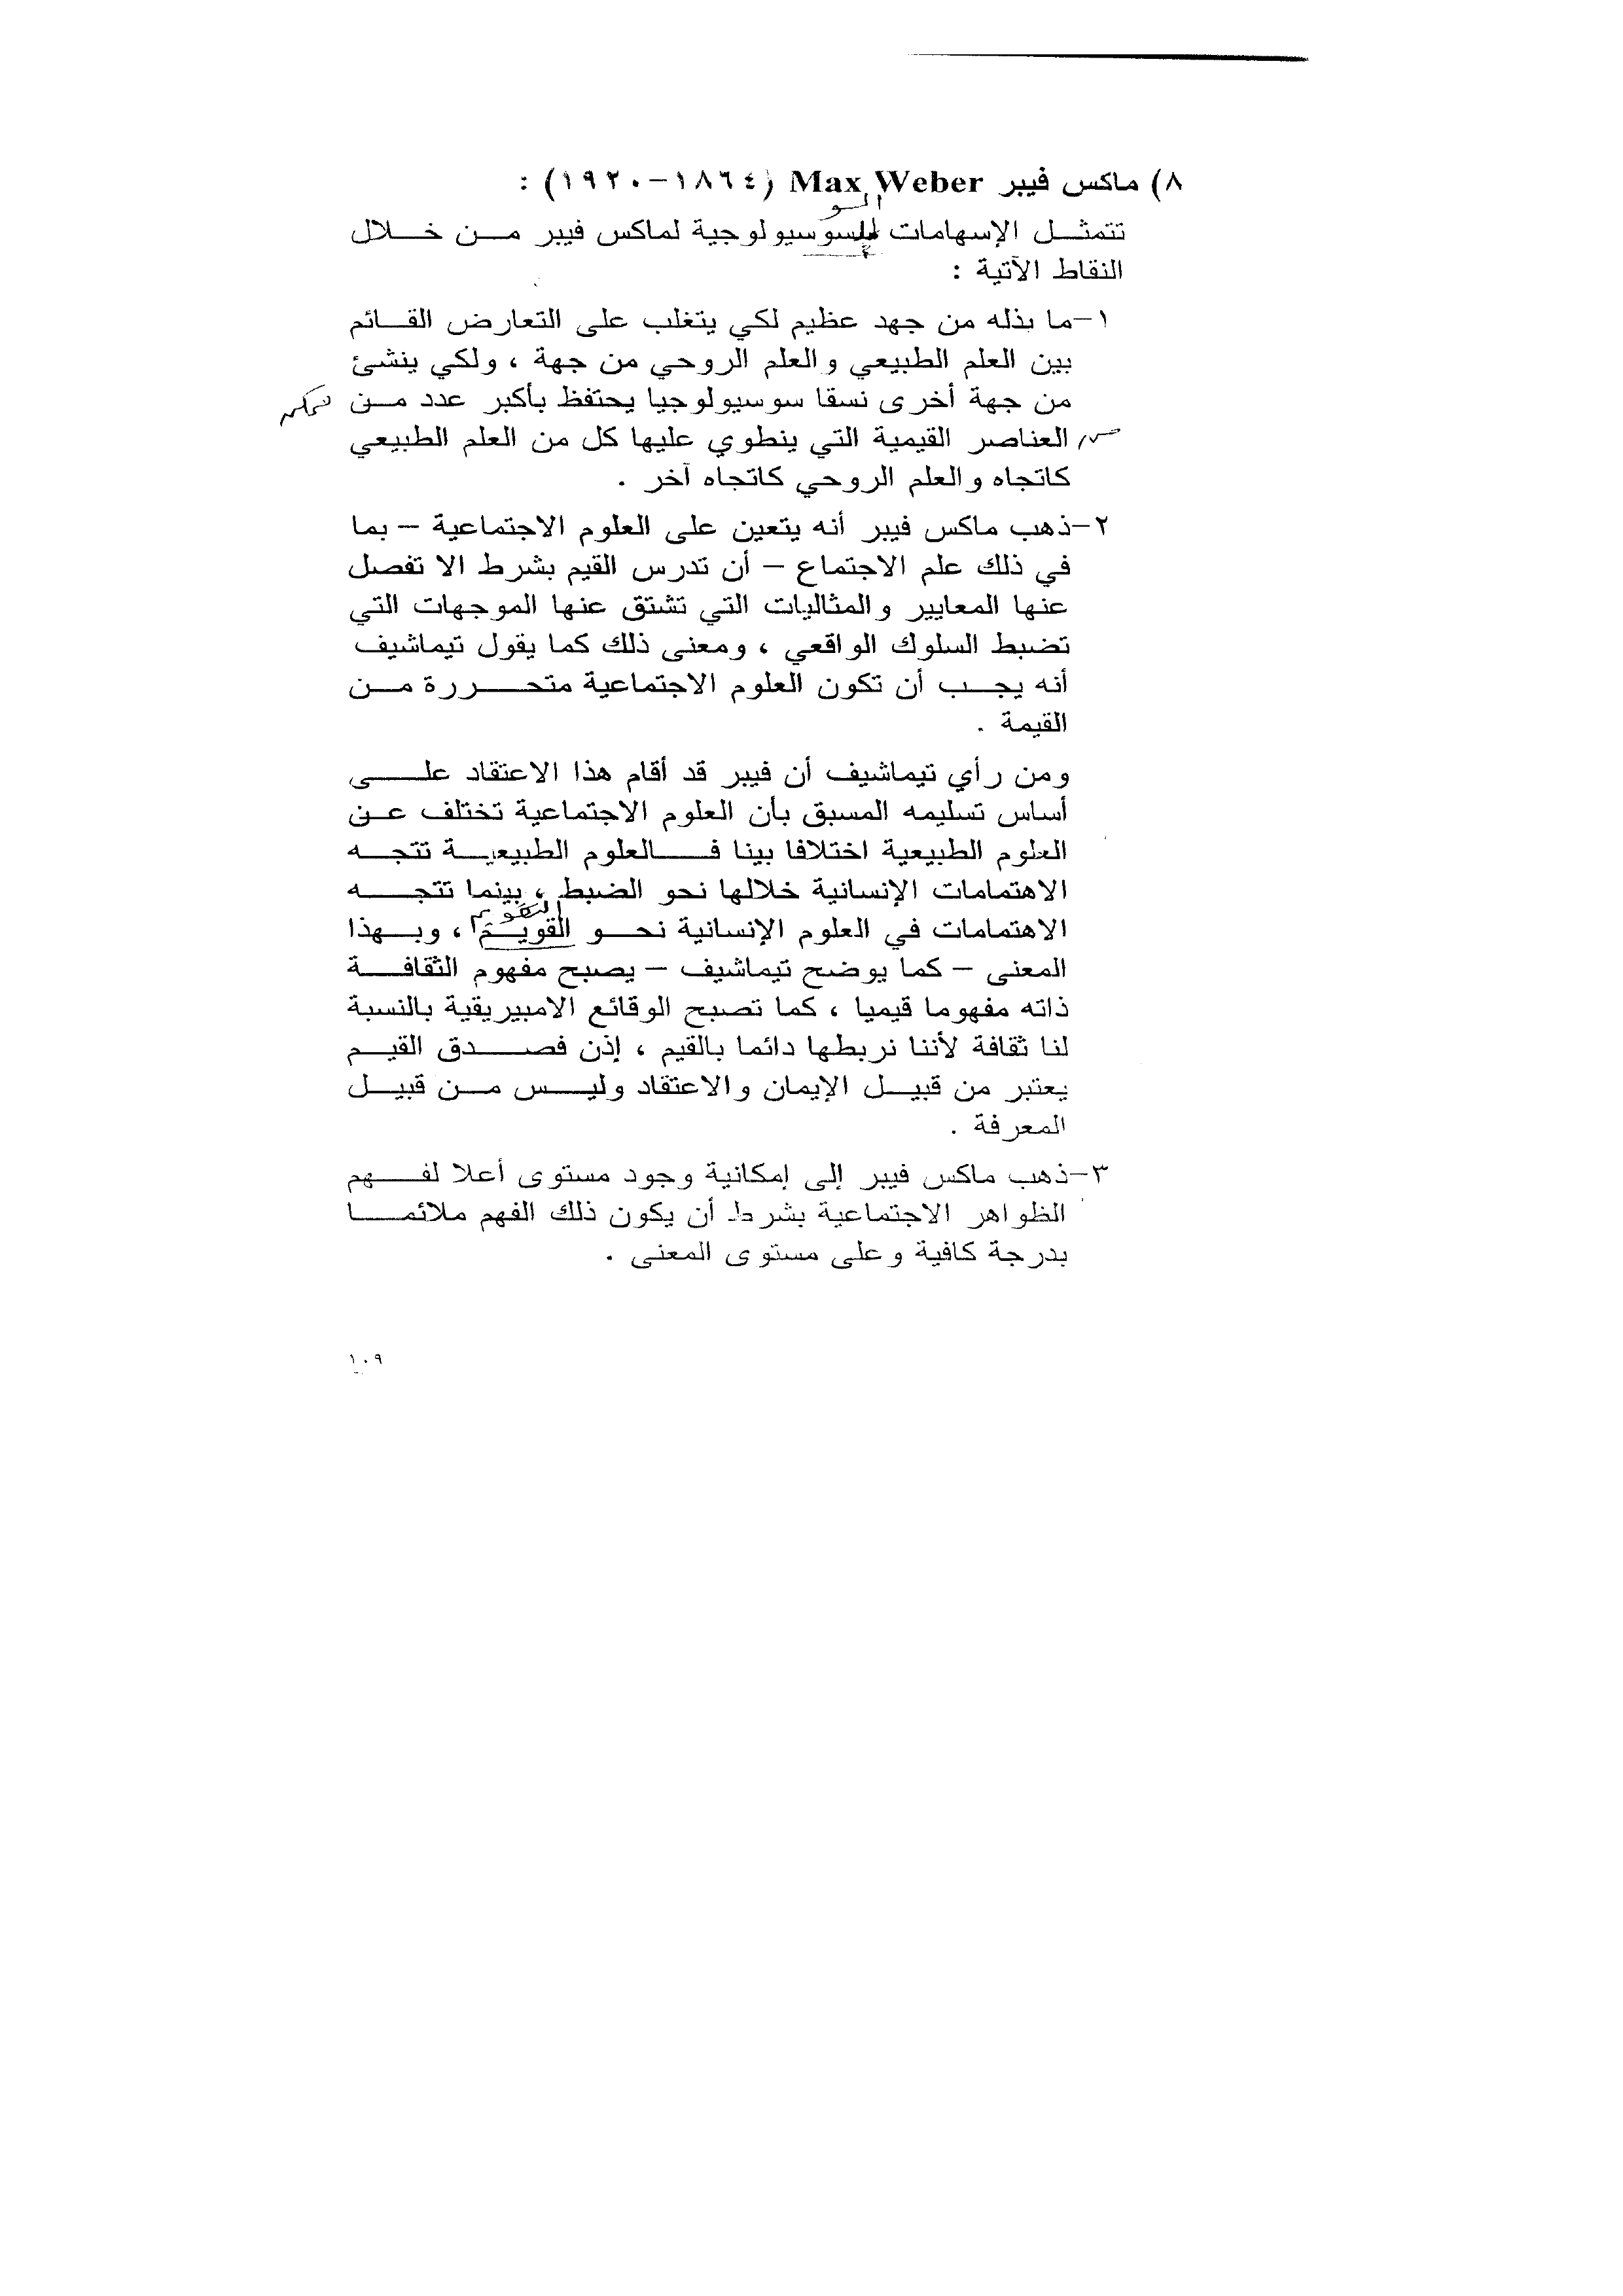 ٨) ماكس فيبر Max Weber (١٨٦٤-١٩٢٠) :
السو
تتمثل الإسهامات للسوسيولوجية لماكس فيبر من خلال
النقاط الآتية :
١-ما بذله من جهد عظيم لكي يتغلب على التعارض القائم
بين العلم الطبيعي والعلم الروحي من جهة ، ولكي ينشئ
من جهة أخرى نسقا سوسيولوجيا يحتفظ بأكبر عدد من
العناصر القيمية التي ينطوي عليها كل من العلم الطبيعي
كاتجاه والعلم الروحي كاتجاه آخر .
٢-ذهب ماكس فيبر أنه يتعين على العلوم الاجتماعية – بما
في ذلك علم الاجتماع – أن تدرس القيم بشرط الا تفصل
عنها المعايير والمثاليات التي تشتق عنها الموجهات التي
تضبط السلوك الواقعي ، ومعنى ذلك كما يقول تيماشيف
أنه يجب أن تكون العلوم الاجتماعية متحررة من
القيمة .
ومن رأي تيماشيف أن فيبر قد أقام هذا الاعتقاد على
أساس تسليمه المسبق بأن العلوم الاجتماعية تختلف عن
العلوم الطبيعية اختلافا بينا فالعلوم الطبيعية تتجه
الاهتمامات الإنسانية خلالها نحو الضبط ، بينما تتجه
التقويم
الاهتمامات في العلوم الإنسانية نحو القويم ، وبهذا
المعنى – كما يوضح تيماشيف – يصبح مفهوم الثقافة
ذاته مفهوما قيميا ، كما تصبح الوقائع الامبيريقية بالنسبة
لنا ثقافة لأننا نربطها دائما بالقيم ، إذن فصدق القيم
يعتبر من قبيل الإيمان والاعتقاد وليس من قبيل
المعرفة .
٣-ذهب ماكس فيبر إلى إمكانية وجود مستوى أعلا لفهم
الظواهر الاجتماعية بشرط أن يكون ذلك الفهم ملائما
بدرجة كافية وعلى مستوى المعنى .
١٠٩